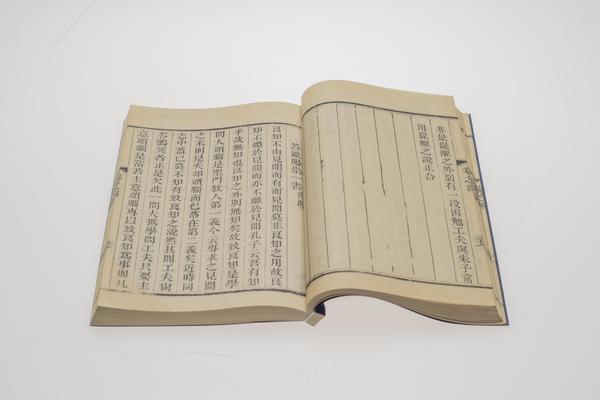 非是提醒之外別有一段困勉工夫與朱子嘗
用提醒之說正合
答歐陽崇一書
良知不由見聞而有而見聞莫非良知之用故良
知不滯於見聞而亦不離於見聞孔子云吾有知
乎哉無知也良知之外別無知矣故致良知是學
問大頭腦是聖門教人第一義今云專求之見聞
之末則是失却頭腦而已落在第二義矣近時同
志中蓋已莫不知有致良知之說然其間工夫尚
多鶻突者正是欠此一問大抵學問工夫只要主
意頭腦是當若主意頭腦專以致良知為事則凡